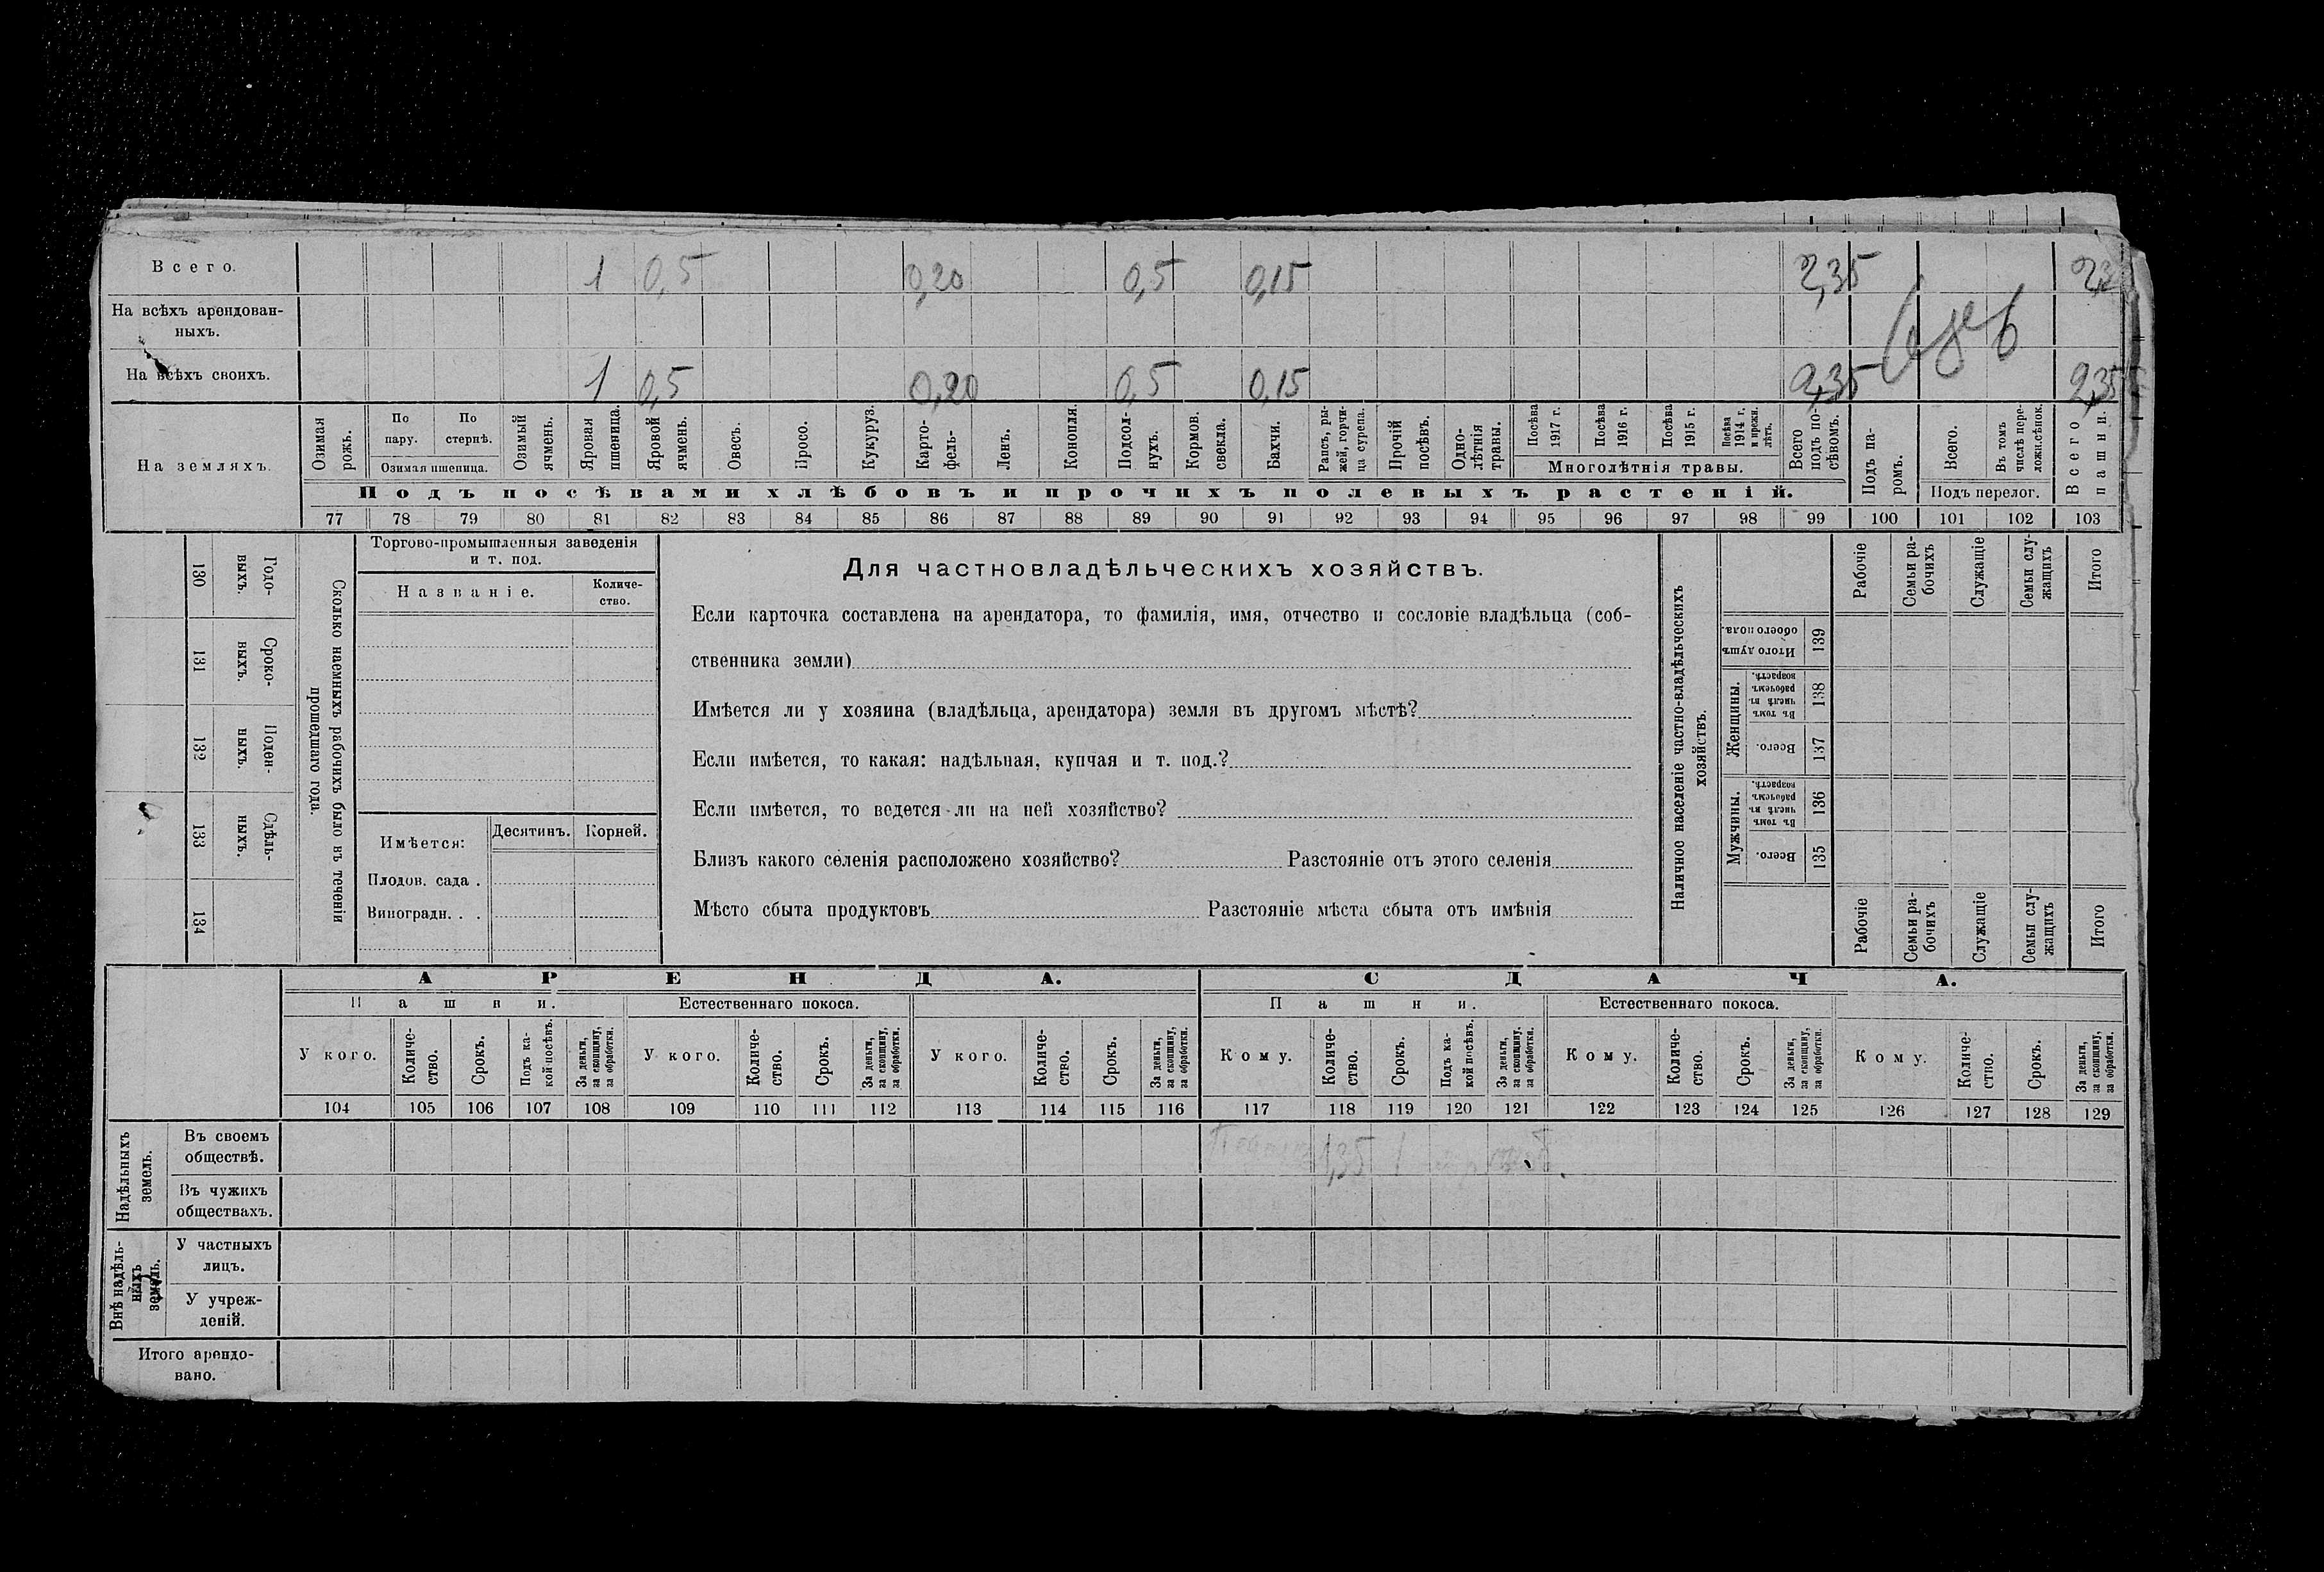 Всего. 1 0,5 0,20 0,5 0,15 2,35
На всѣхъ арендован-
ныхъ.
На всѣхъ своихъ. 1 0,5 0,20 0,5 0,15 2,35 2,35
На земляхъ.
Озимая рожь.
По пару.
По стернѣ.
Озимая пшеница.
Озимый ячмень.
Яровая пшеница.
Яровой ячмень.
Овесъ.
Просо.
Кукуруз.
Карто-
фель-
Ленъ.
Конопля.
Подсол-
нухъ.
Кормов.
свекла.
Бахчи.
Рапсъ, ры-
жей, горчи-
ца сурепа.
Прочій
посѣвъ.
Одно-
лѣтнія
травы.
Посѣва
1917 г.
Посѣва
1916 г.
Посѣва
1915 г.
Посѣва
1914 г.
и прежн.
лѣтъ.
Многолѣтнія травы.
Всего
подъ по-
сѣвомъ.
Подъ па-
ромъ.
Всего.
Въ томъ
числѣ пере-
ложн.сѣнок.
Подъ перелог.
Всего
пашни.
Подъ посѣвами хлѣбовъ и прочихъ полевыхъ растеній.
77 78 79 80 81 82 83 84 85 86 87 88 89 90 91 92 93 94 95 96 97 98 99 100 101 102 103
Годо-
выхъ.
130
Сроко-
ныхъ.
131
Поден-
ныхъ.
132
Сдѣль-
ныхъ.
133
134
Сколько наемныхъ рабочихъ было въ теченіи
прошедшаго года.
Торгово-промышленныя заведенія
и т. под.
Названіе.
Количе-
ство.
Имѣется:
Десятинъ. Корней.
Плодов. сада .
Виноградн. . .
Для частновладѣльческихъ хозяйствъ.
Если карточка составлена на арендатора, то фамилія, имя, отчество и сословіе владѣльца (соб-
ственника земли)
Имѣется ли у хозяина (владѣльца, арендатора) земля въ другомъ мѣстѣ?
Если имѣется, то какая: надѣльная, купчая и т. под.?
Если имѣется, то ведется-ли на ней хозяйство?
Близъ какого селенія расположено хозяйство? Разстояніе отъ этого селенія
Мѣсто сбыта продуктовъ Разстояніе мѣста сбыта отъ имѣнія
Наличное населеніе частно-владѣльческихъ
хозяйствъ.
Рабочіе
Семьи ра-
бочихъ
Служащіе
Семьи слу-
жащихъ
Итого
Итого душъ
обоего пола.
139
Женщины.
Въ томъ
числѣ въ
рабочемъ
возрастѣ.
138
Всего.
137
Мужчины.
Въ томъ
числѣ въ
рабочемъ
возрастѣ.
136
Всего.
135
Рабочіе
Семьи ра-
бочихъ
Служащіе
Семьи слу-
жащихъ
Итого
АРЕНДА. СДАЧА.
Пашни. Естественнаго покоса. Пашни. Естественнаго покоса.
У кого.
Количе-
ство.
Срокъ.
Подъ ка-
кой посѣвъ.
За деньги,
за скопщину,
за обработки.
У кого.
Количе-
ство.
Срокъ.
За деньги,
за скопщину,
за обработки.
У кого.
Количе-
ство.
Срокъ.
За деньги,
за скопщину,
за обработки.
Кому.
Количе-
ство.
Срокъ.
Подъ ка-
кой посѣвъ.
За деньги,
за скопщину,
за обработки.
Кому.
Количе-
ство.
Срокъ.
За деньги,
за скопщину,
за обработки.
Кому.
Количе-
ство.
Срокъ.
За деньги,
за скопщину,
за обработки.
104 105 106 107 108 109 110 111 112 113 114 115 116 117 118 119 120 121 122 123 124 125 126 127 128 129
Надѣльныхъ
земель.
Въ своемъ
обществѣ. 1,35 1
Въ чужихъ
обществахъ.
Внѣ надѣль-
ныхъ
земель.
У частныхъ
лицъ.
У учреж-
деній.
Итого арендо-
вано.